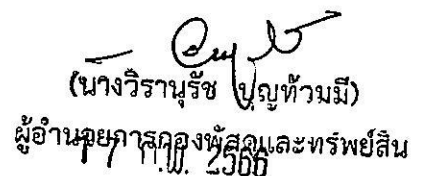 (นางวิรานุรัช บุญท้วมมี)
ผู้อำนวยการกองพัสดุและทรัพย์สิน
17 ก.พ. 2566